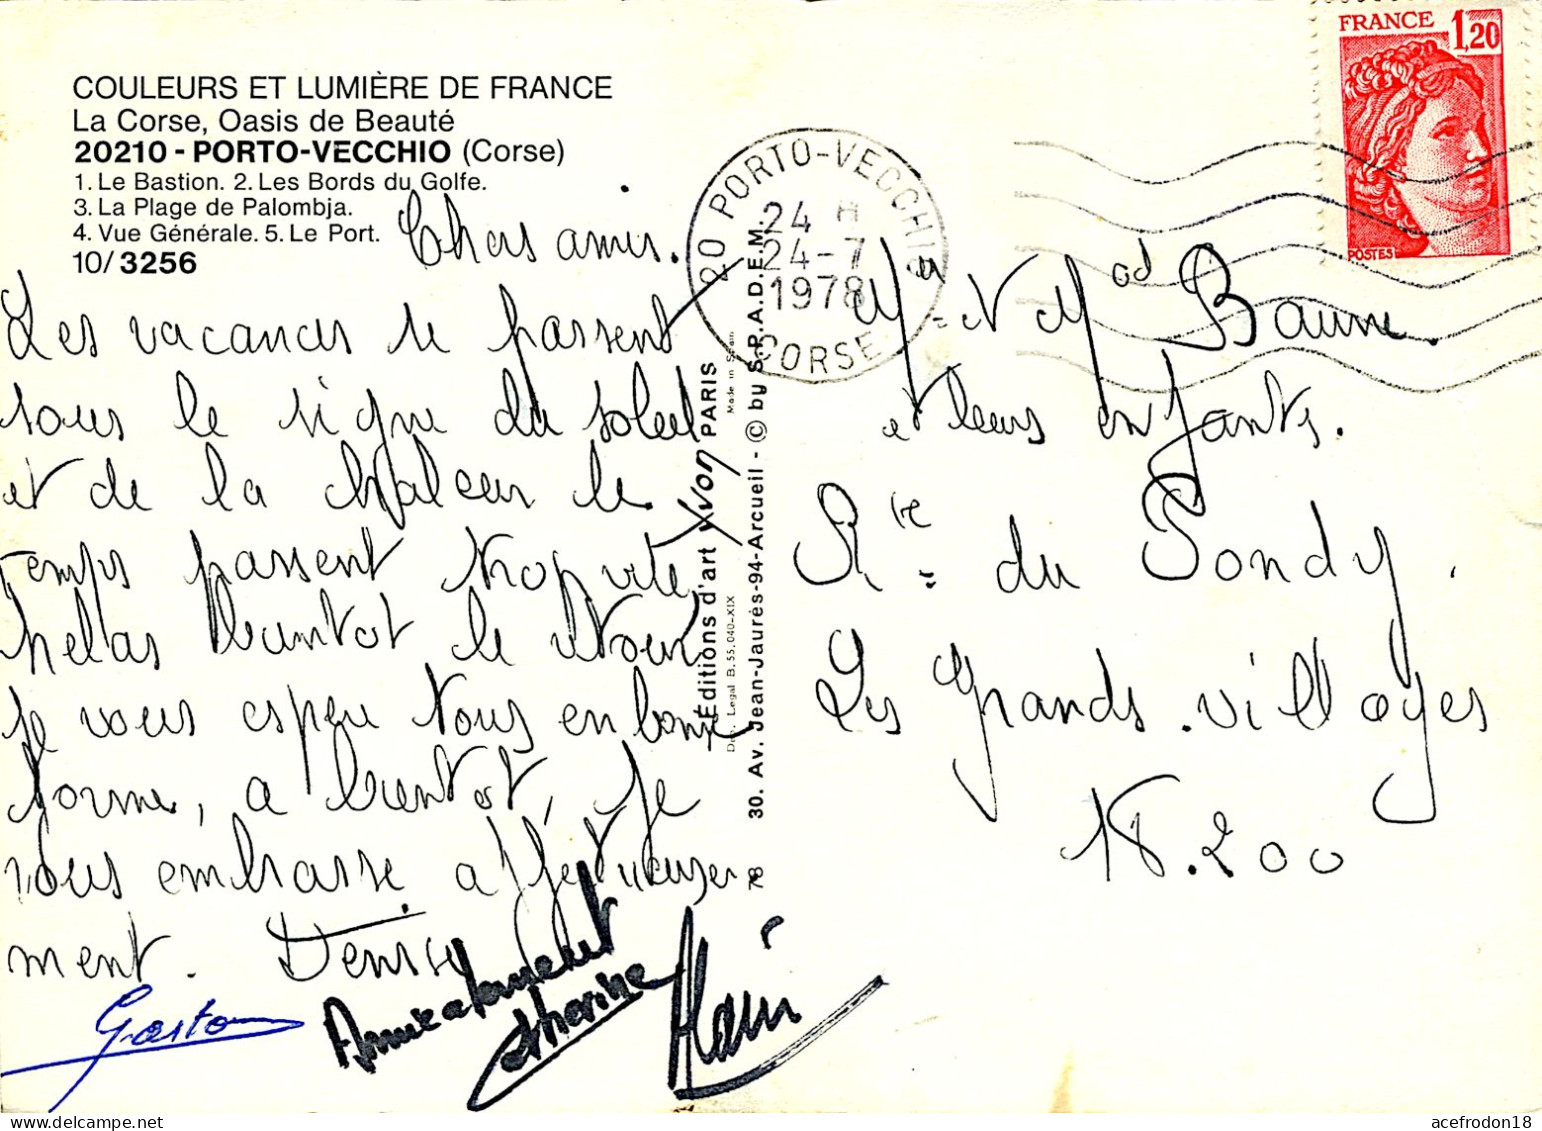 COULEURS ET LUMIÈRE DE FRANCE
La Corse, Oasis de Beauté
20210 - PORTO-VECCHIO (Corse)
1. Le Bastion. 2. Les Bords du Golfe.
3. La Plage de Palombja.
4. Vue Générale. 5. Le Port.
10/3256
Chers amis.
Les vacances se passent
sous le signe du soleil
et de la chaleur le
temps passent trop vite
helas bientot le retour
je vous espere tous en bonne
forme, a bientot, je
vous embrasse affectueuse
ment. Denise
Gaston
Amicalement
Catherine
Alain
Éditions d'art YVON PARIS
Made in Spain
Dep. Legal B. 55.040-XIX
30. Av. Jean-Jaurés-94-Arcueil - © by S.P.R.A.D.E.M.
78
20 PORTO-VECCHIO
24 H
24-7
1978
CORSE
FRANCE 1,20
POSTES
Mr et Md Baume.
et leurs enfants.
Rte du Pondy.
Les Grands villages
18.200
acefrodon18